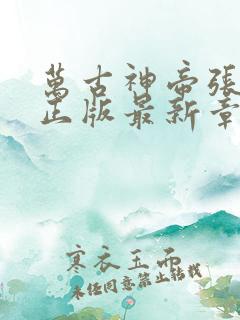 萬古神帝張
正版最新章
寒衣玉而
未经同意禁止转载